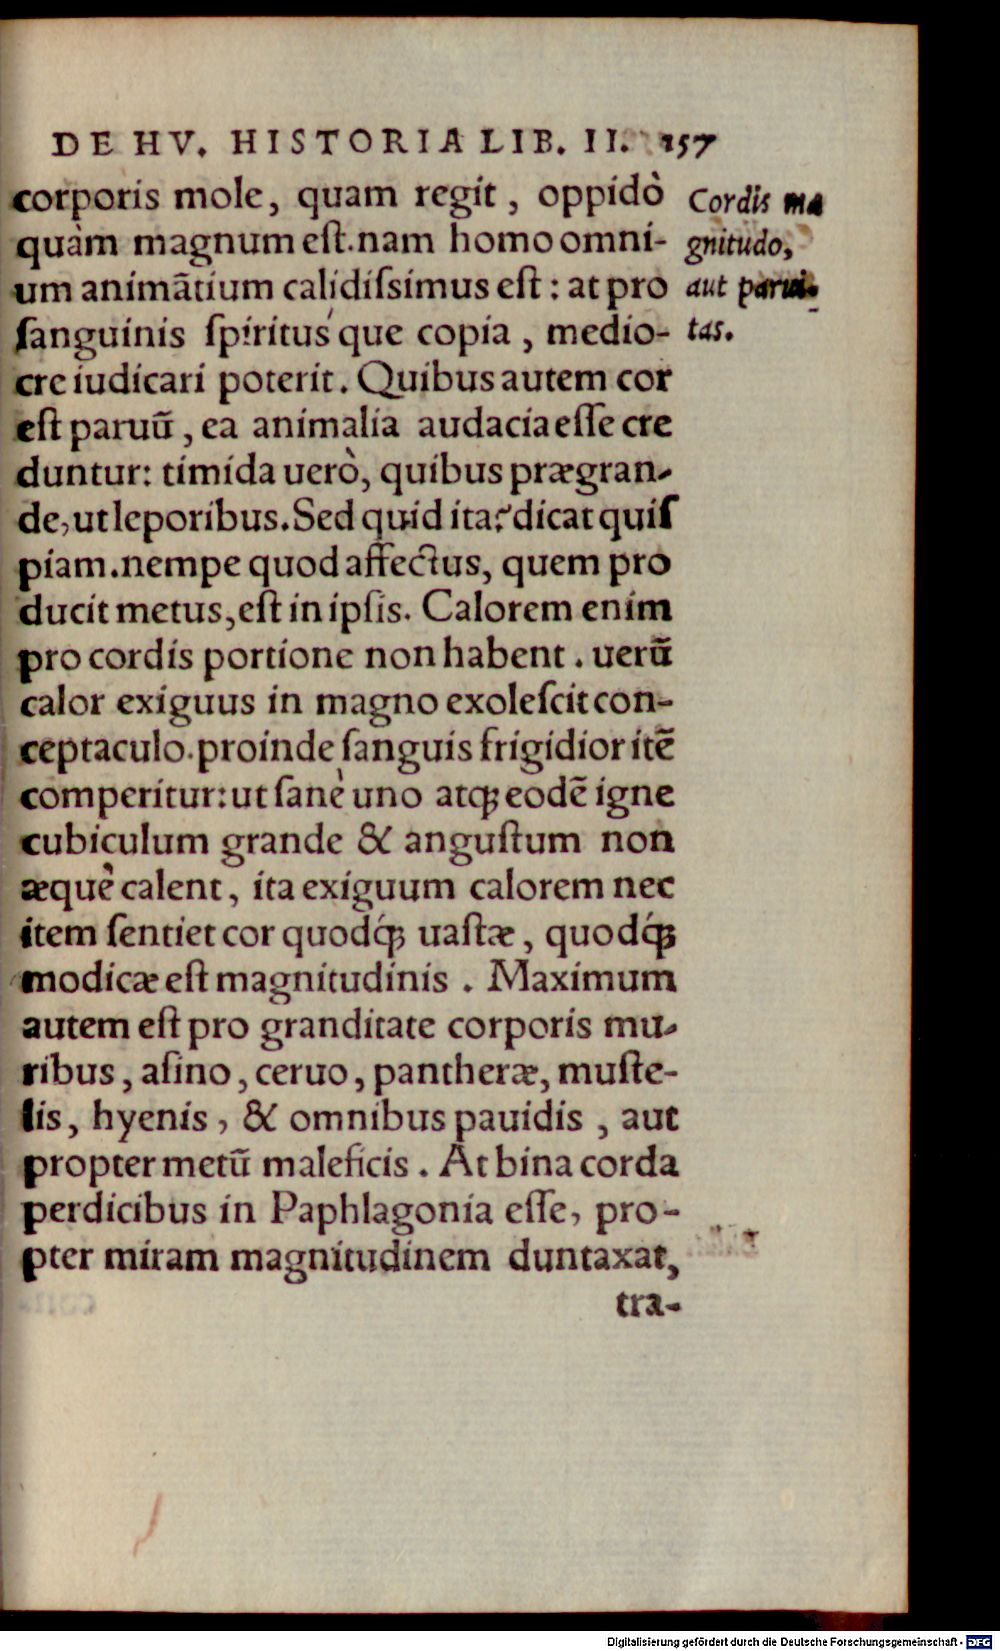 DE HV. HISTORIA LIB. II. 157
corporis mole, quam regit, oppidò
quàm magnum eſt. nam homo omni-
um animãtium calidiſsimus eſt: at pro
ſanguinis ſpiritusq́ue copia, medio-
cre iudicari poterit. Quibus autem cor
eſt paruũ, ea animalia audacia eſſe cre
duntur: timida uerò, quibus prægran-
de, ut leporibus. Sed quid ita? dicat quiſ
piam. nempe quod affectus, quem pro
ducit metus, eſt in ipſis. Calorem enim
pro cordis portione non habent. uerũ
calor exiguus in magno exoleſcit con-
ceptaculo. proinde ſanguis frigidior itẽ
comperitur: ut ſanè uno atq; eodẽ igne
cubiculum grande & anguſtum non
æquè calent, ita exiguum calorem nec
item ſentiet cor quodq́; uaſtæ, quodq́;
modicæ eſt magnitudinis. Maximum
autem eſt pro granditate corporis mu-
ribus, aſino, ceruo, pantheræ, muſte-
lis, hyenis, & omnibus pauidis, aut
propter metũ maleficis. At bina corda
perdicibus in Paphlagonia eſſe, pro-
pter miram magnitudinem duntaxat,
tra-
Cordis ma
gnitudo,
aut parui-
tas.
Digitalisierung gefördert durch die Deutsche Forschungsgemeinschaft - DFG